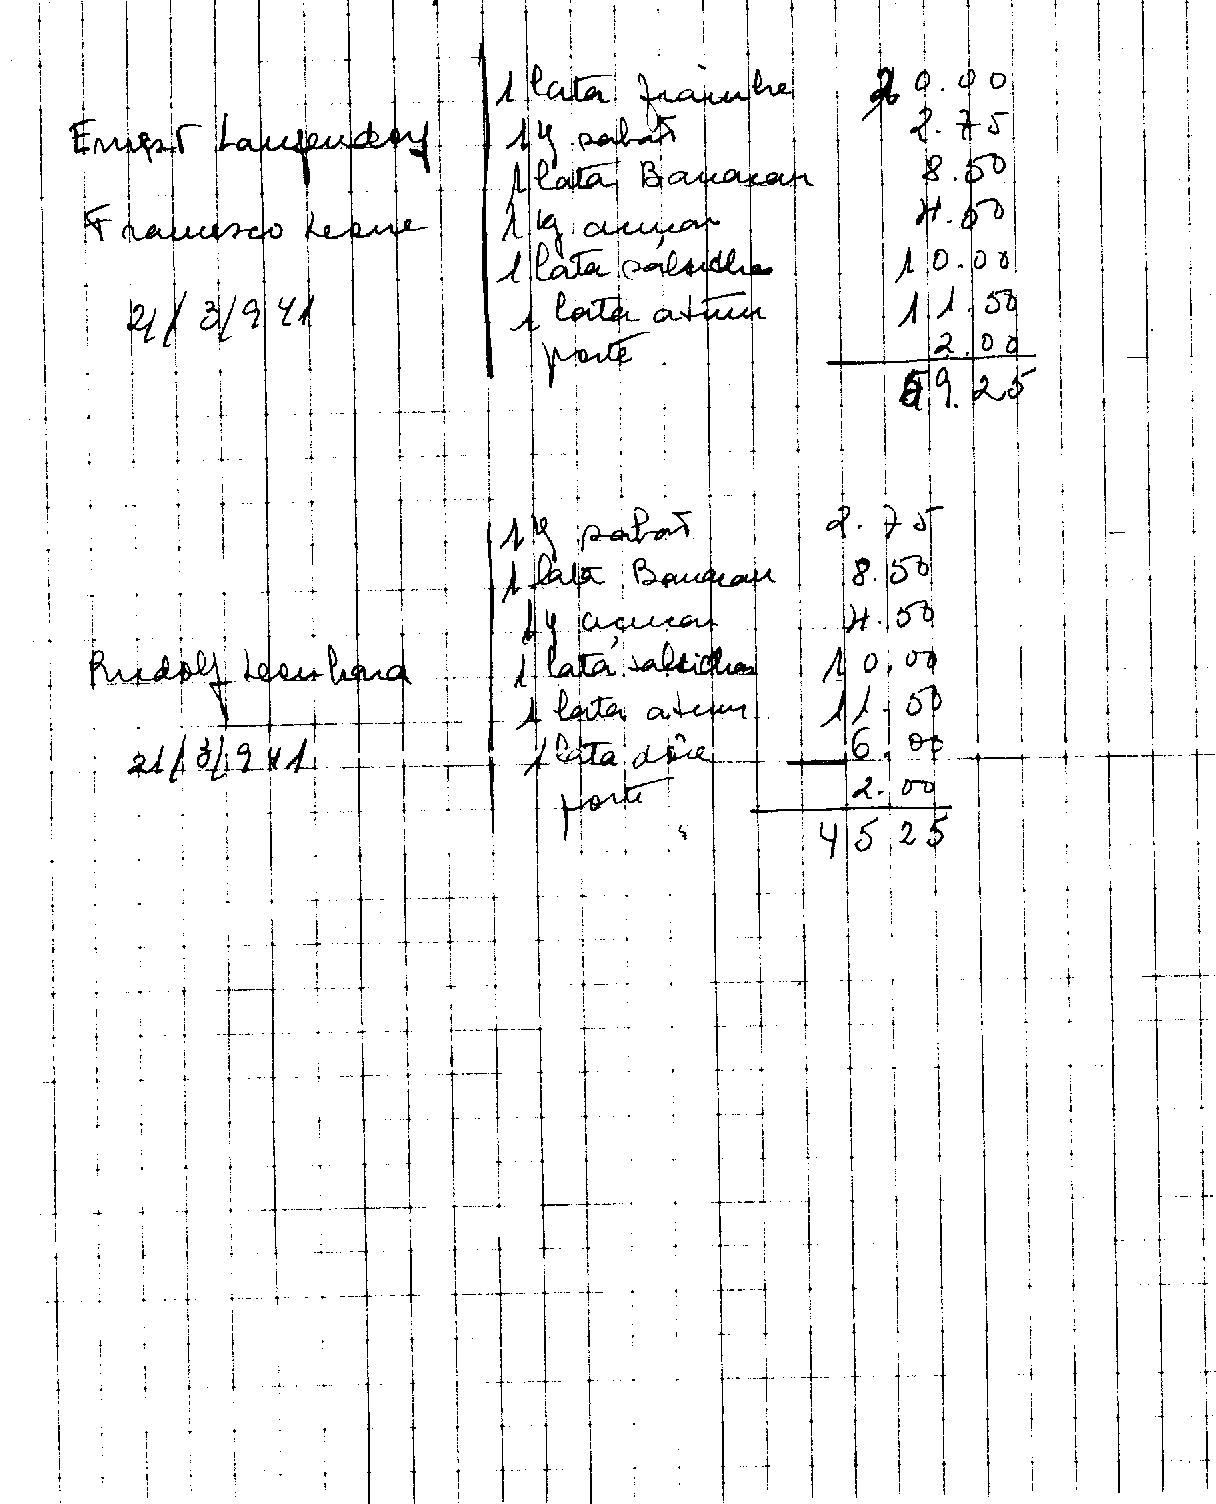 1 lata fiambre 20.00
Ernest Langendorf
1 Kg sabão 2.75
1 lata Banacao 8.50
Francesco Leone
1 Kg açucar 4.50
1 lata salsichas 10.00
21/3/941
1 lata atum 11.50
porte 2.00
59.25
1 Kg sabão 2.75
1 lata Banacao 8.50
1 Kg açucar 4.50
Rudolf Leonhard
1 lata salsichas 10.00
1 lata atum 11.50
21/3/941
1 lata dôce 6.00
porte 2.00
45 25